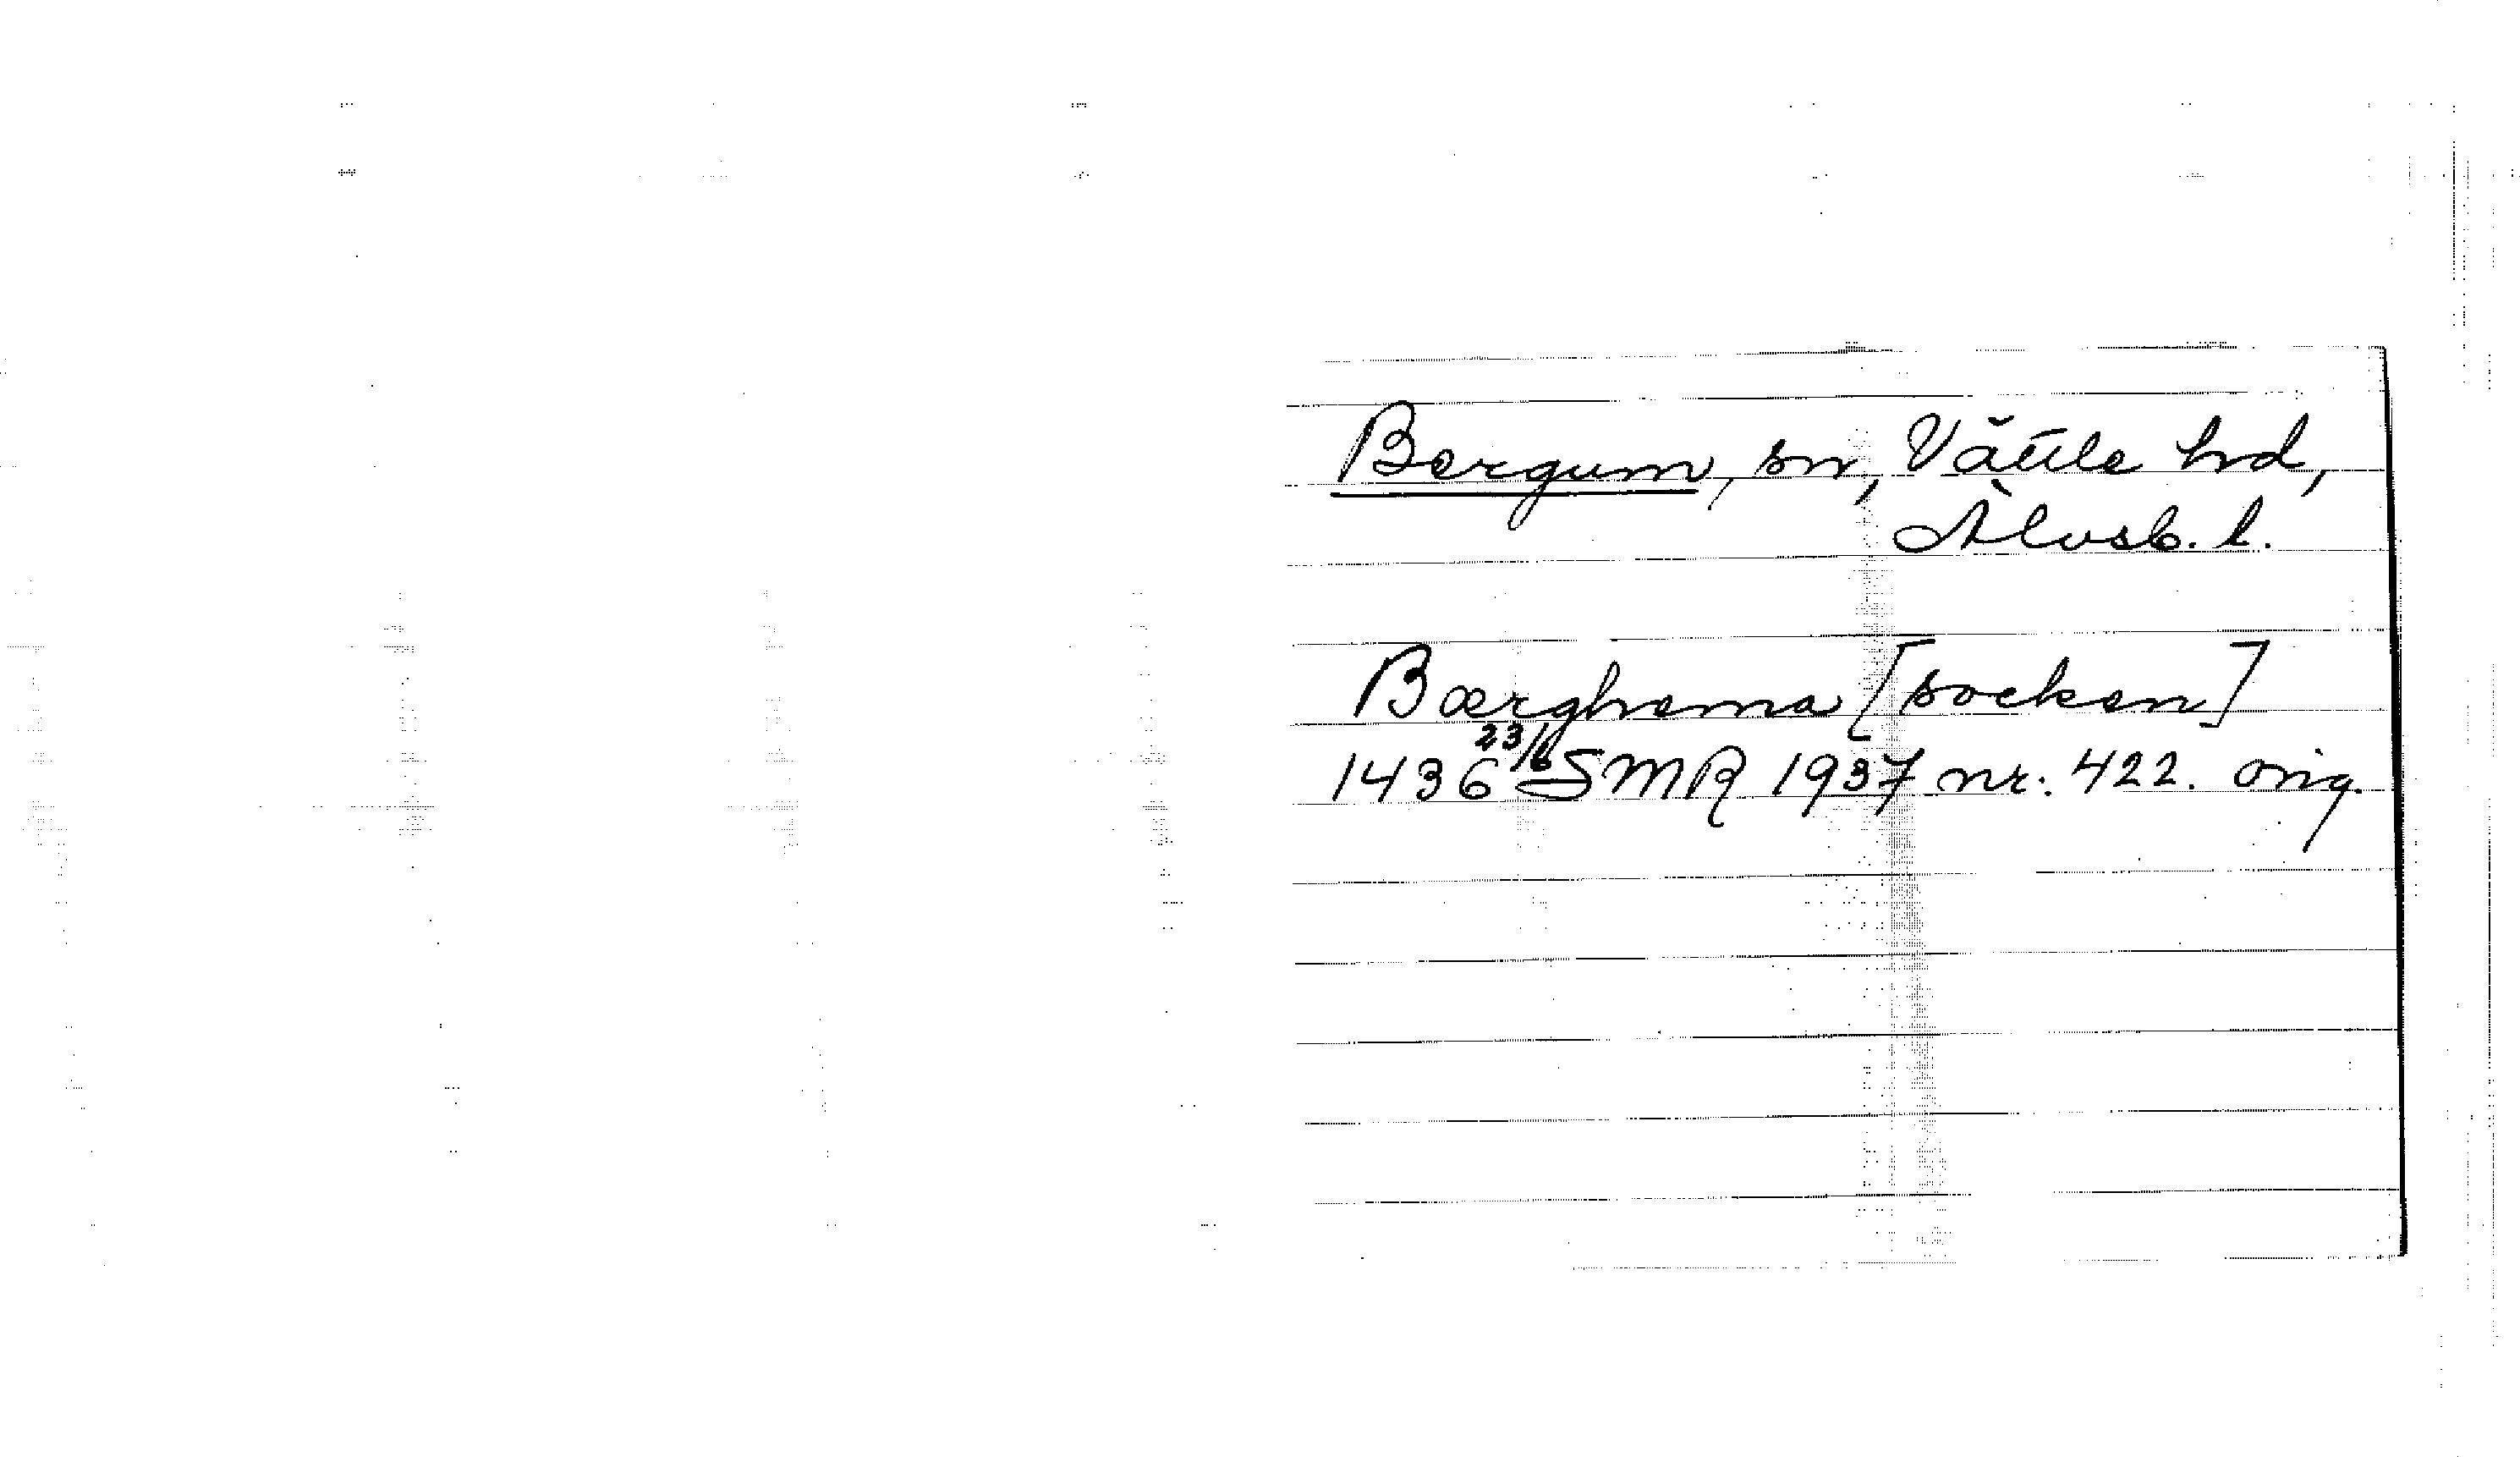 Bergum, sn, Vättle hd,
Älvsb. l.
Bærghema [socken]
1436 23/6 SMR 1937 nr. 422. orig.